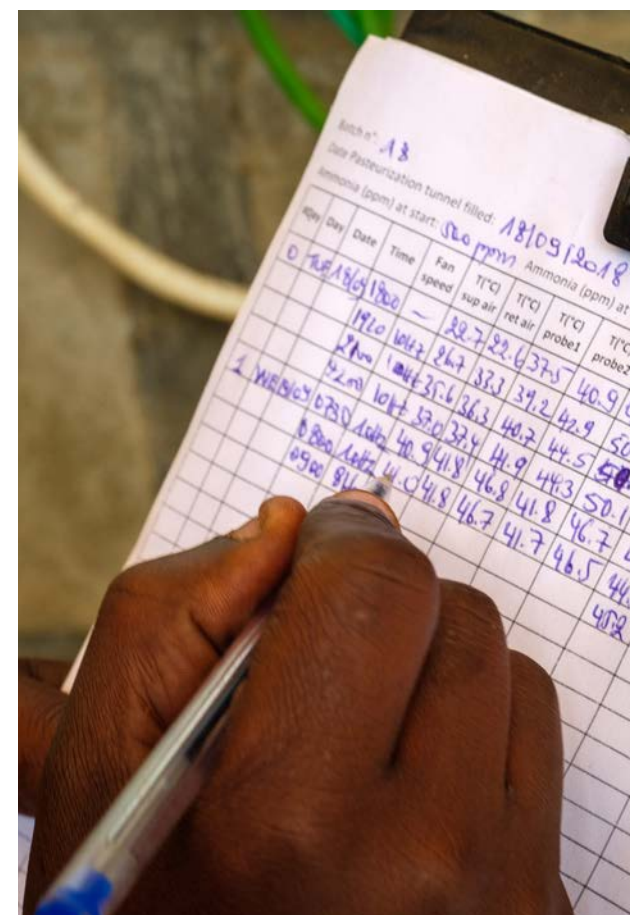 Batch n°: 18
Date Pasteurization tunnel filled: 18/09/2018
Ammonia (ppm) at start: 500 ppm Ammonia (ppm) at
#Day Day Date Time Fan speed T(°C) sup air T(°C) ret air T(°C) probe1 T(°C) probe2
0 TUE 18/09 1800 – 22.7 22.6 37.5 40.9
1920 10Hz 26.7 33.3 39.2 42.9 50
10Hz 35.6 36.3 40.7 44.5
2200 10Hz 37.0 37.4 41.9 44.3 50.1
1 WE 19/09 0730 10Hz 40.9 41.8 46.8 41.8 46.7
0800 10Hz 41.0 41.8 46.7 41.7 46.5 44.
0900 45.2